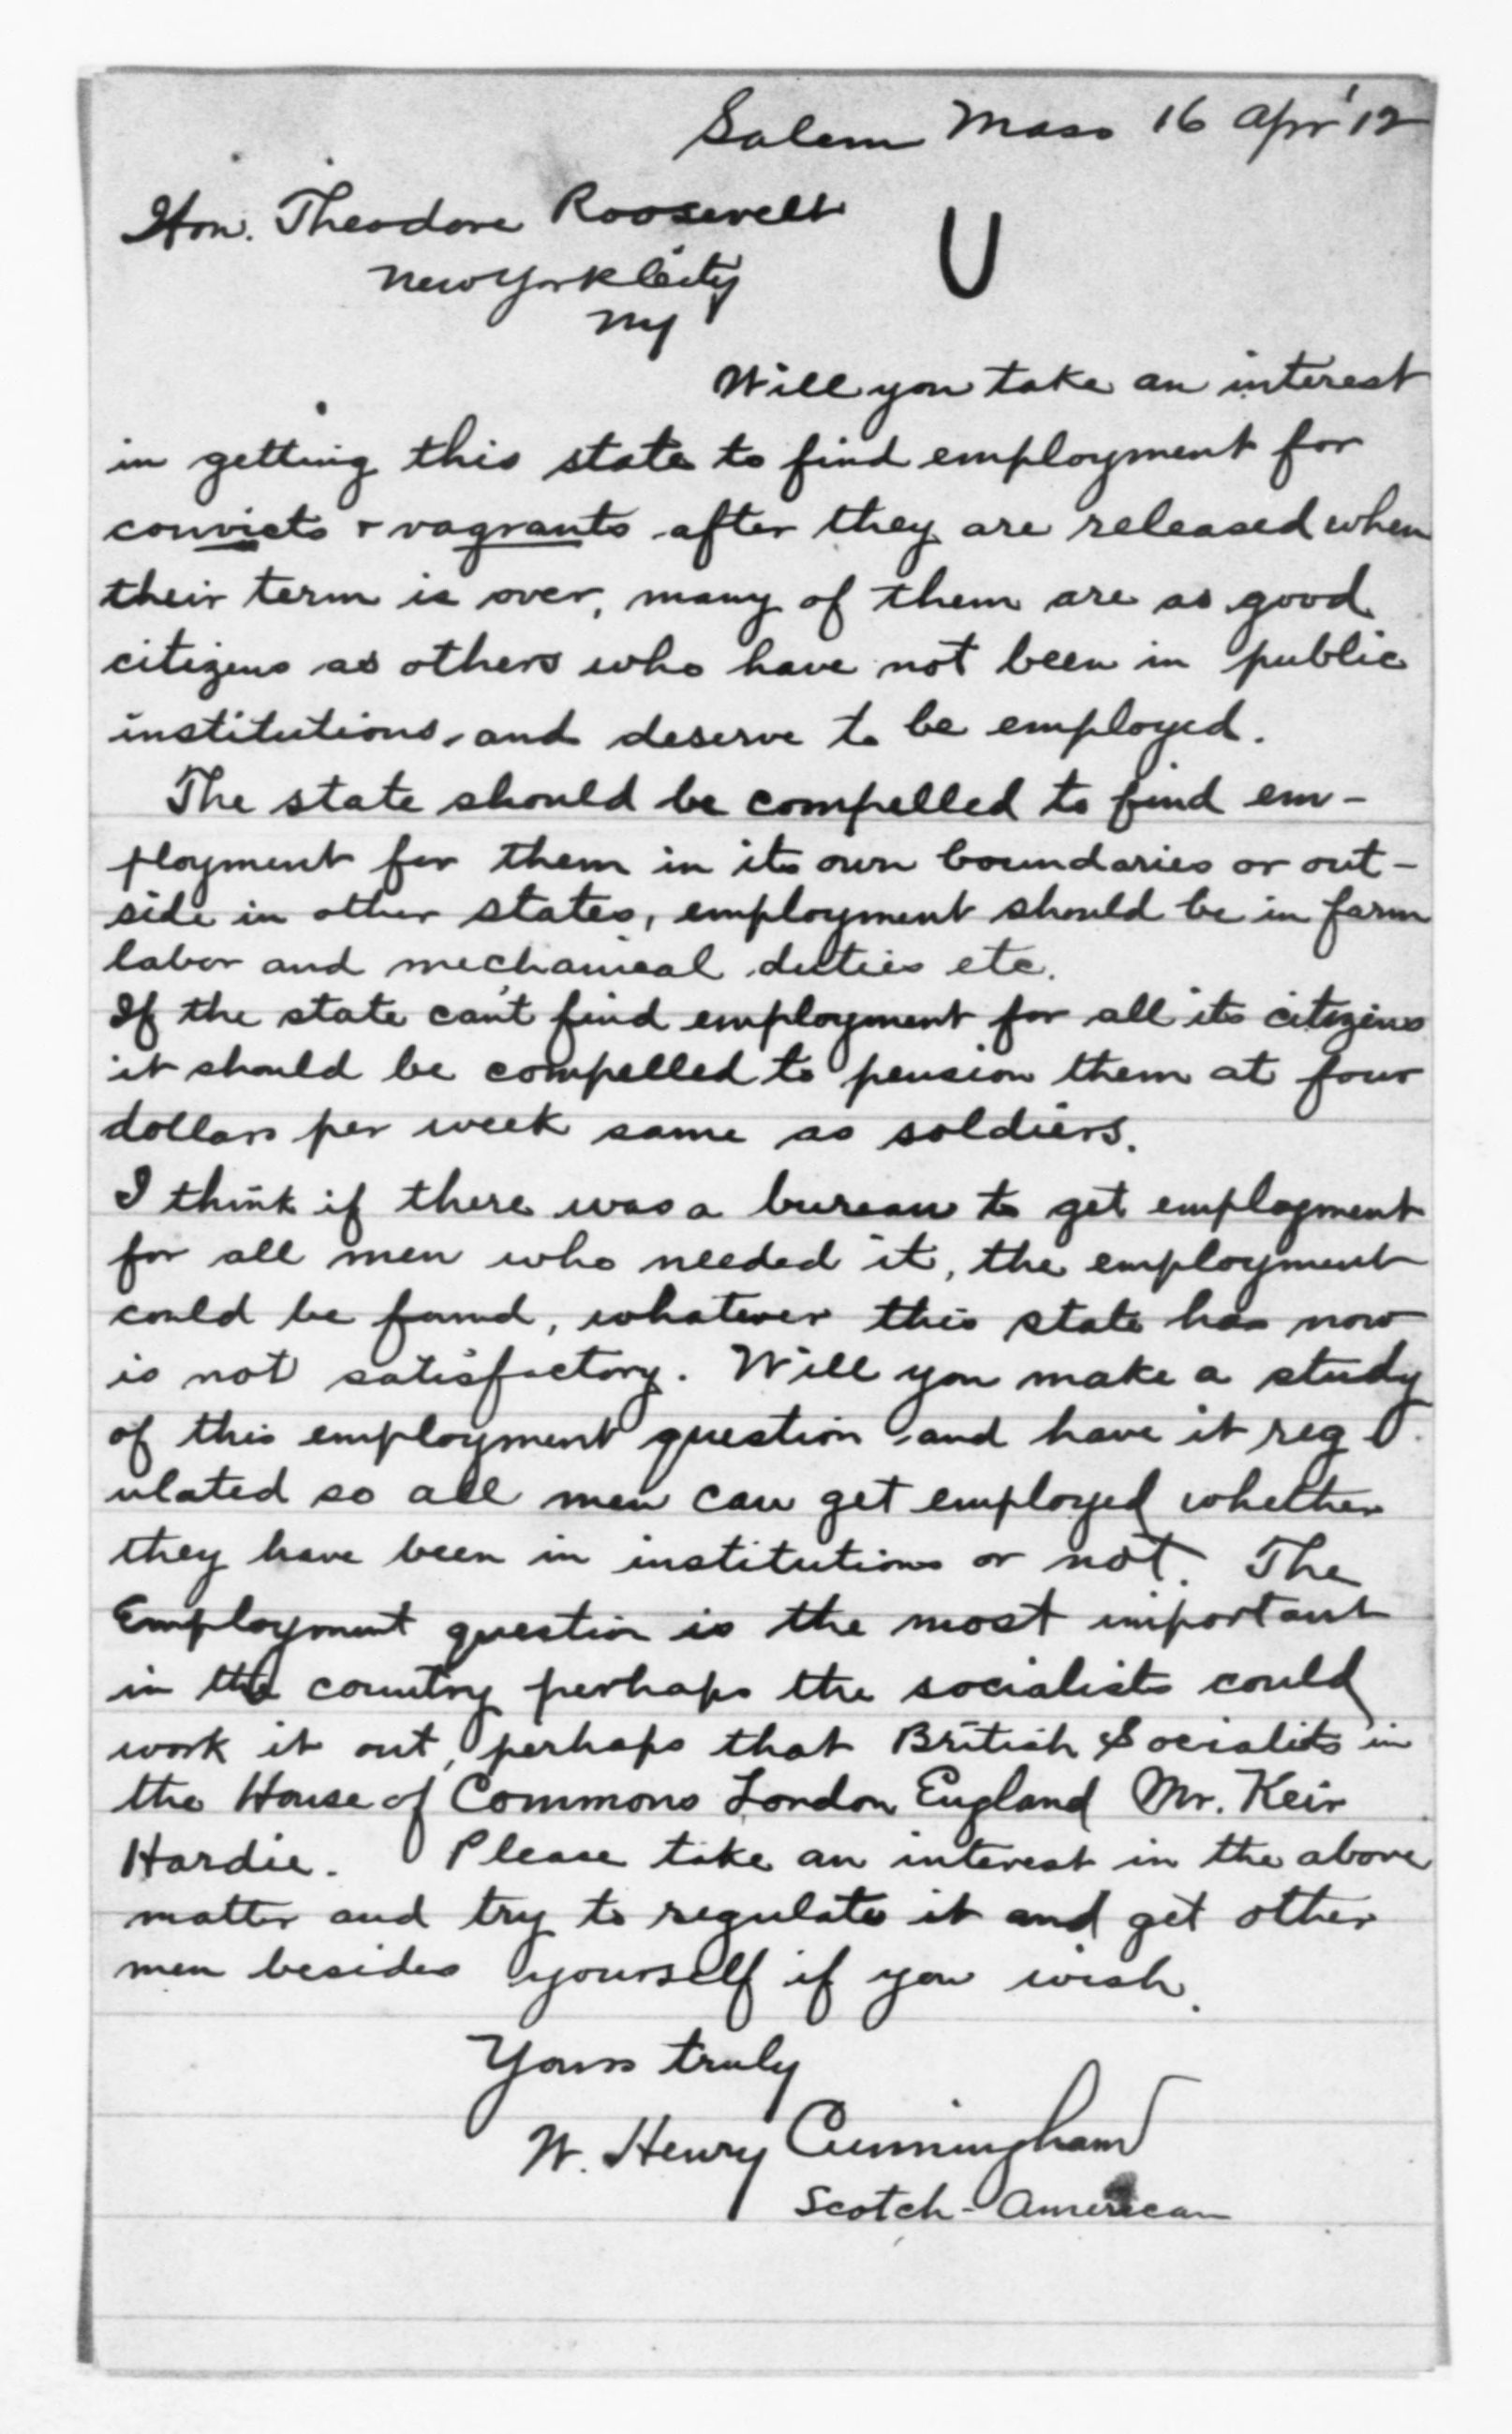 Salem Mass 16 Apr '12
Hon. Theodore Roosevelt
U
New York City
NY
Will you take an interest
in getting this state to find employment for
convicts + vagrants after they are released when
their term is over, many of them are as good
citizens as others who have not been in public
institutions, and deserve to be employed.
The state should be compelled to find em-
ployment for them in its own boundaries or out-
side in other states, employment should be in farm
labor and mechanical duties etc.
If the state can't find employment for all its citizens
it should be compelled to pension them at four
dollars per week same as soldiers.
I think if there was a bureau to get employment
for all men who needed it, the employment
could be found, whatever this state has now
is not satisfactory. Will you make a study
of this employment question and have it reg-
ulated so all men can get employed whether
they have been in institutions or not. The
Employment question is the most important
in the country perhaps the socialists could
work it out, perhaps that British Socialists in
the House of Commons London England Mr. Keir
Hardie. Please take an interest in the above
matter and try to regulate it and get other
men besides yourself if you wish.
Yours truly
W. Henry Cunningham
Scotch-American